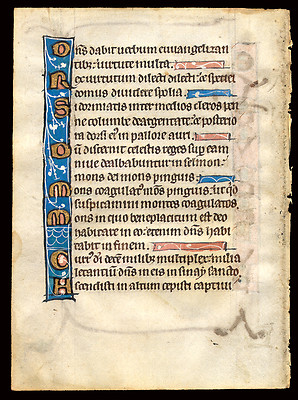 Dñs dabit uerbum euuangelizan
tib; uirtute multa.
Rex uirtutum dilecti dilecti ⁊ speciei
domus diuidere spolia.
Si dormiatis inter medios cleros pen
ne columbe deargentate ⁊ posterio
ra dorsi ei' in pallore auri.
Dū discernit celestis reges sup eam
niue dealbabuntur in selmon.
Mons dei mons pinguis
mons coagulat' mōs pinguis. ut qͥd
suspicamini montes coagulatos.
Mons in quo beneplacitum est deo
habitare in eo. etenim dn̄s habi
tabit in finem.
Curr' dei decem milib; multiplex milia
letantium dn̄s in eis in synay sancto
Ascendisti in altum cepisti captiui